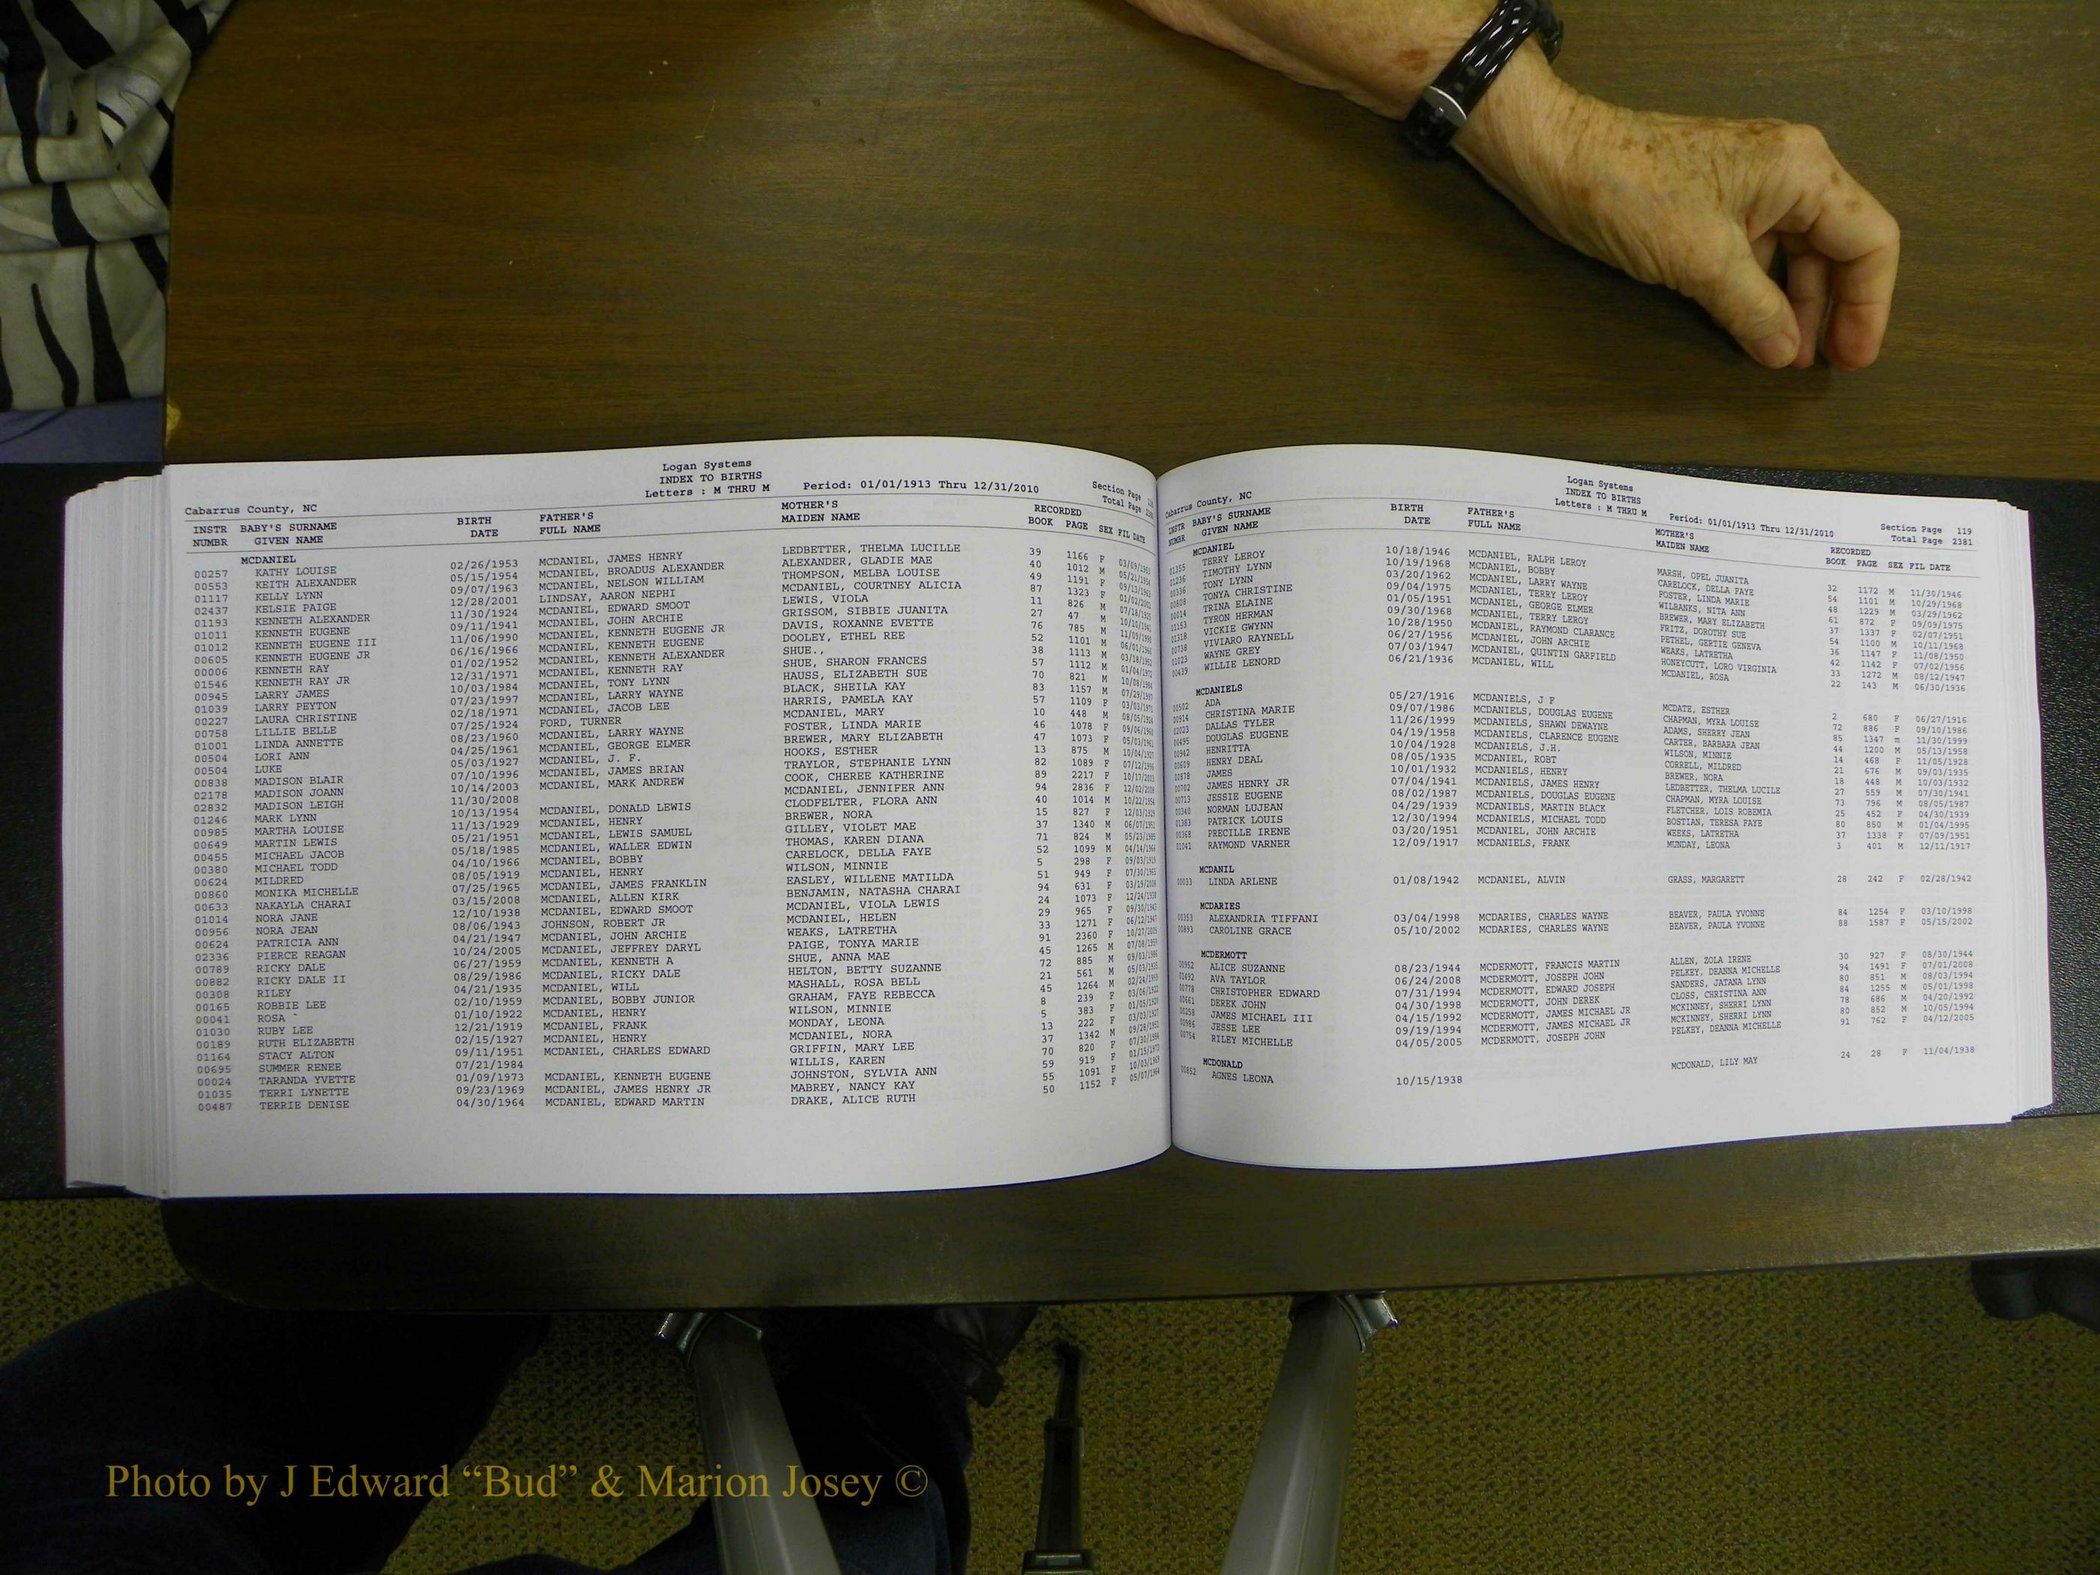 Logan Systems
INDEX TO BIRTHS
Letters : M THRU M Period: 01/01/1913 Thru 12/31/2010
Section Page
Total Page
Cabarrus County, NC
INSTR BABY'S SURNAME BIRTH FATHER'S MOTHER'S RECORDED
NUMBR GIVEN NAME DATE FULL NAME MAIDEN NAME BOOK PAGE SEX FIL DATE
MCDANIEL
00257 KATHY LOUISE 02/26/1953 MCDANIEL, JAMES HENRY LEDBETTER, THELMA LUCILLE 39 1166 F
00553 KEITH ALEXANDER 05/15/1954 MCDANIEL, BROADUS ALEXANDER ALEXANDER, GLADIE MAE 40 1012 M
01117 KELLY LYNN 09/07/1963 MCDANIEL, NELSON WILLIAM THOMPSON, MELBA LOUISE 49 1191 F
02437 KELSIE PAIGE 12/28/2001 LINDSAY, AARON NEPHI MCDANIEL, COURTNEY ALICIA 87 1323 F
01193 KENNETH ALEXANDER 11/30/1924 MCDANIEL, EDWARD SMOOT LEWIS, VIOLA 11 826 M
01011 KENNETH EUGENE 09/11/1941 MCDANIEL, JOHN ARCHIE GRISSOM, SIBBIE JUANITA 27 47 M
01012 KENNETH EUGENE III 11/06/1990 MCDANIEL, KENNETH EUGENE JR DAVIS, ROXANNE EVETTE 76 785 M
00605 KENNETH EUGENE JR 06/16/1966 MCDANIEL, KENNETH EUGENE DOOLEY, ETHEL REE 52 1101 M
00006 KENNETH RAY 01/02/1952 MCDANIEL, KENNETH ALEXANDER SHUE., 38 1113 M
01546 KENNETH RAY JR 12/31/1971 MCDANIEL, KENNETH RAY SHUE, SHARON FRANCES 57 1112 M
00945 LARRY JAMES 10/03/1984 MCDANIEL, TONY LYNN HAUSS, ELIZABETH SUE 70 821 M
01039 LARRY PEYTON 07/23/1997 MCDANIEL, LARRY WAYNE BLACK, SHEILA KAY 83 1157 M
00227 LAURA CHRISTINE 02/18/1971 MCDANIEL, JACOB LEE HARRIS, PAMELA KAY 57 1109 F
00758 LILLIE BELLE 07/25/1924 FORD, TURNER MCDANIEL, MARY 10 448
01001 LINDA ANNETTE 08/23/1960 MCDANIEL, LARRY WAYNE FOSTER, LINDA MARIE 46 1078 F
00504 LORI ANN 04/25/1961 MCDANIEL, GEORGE ELMER BREWER, MARY ELIZABETH 47 1073 F
00504 LUKE 05/03/1927 MCDANIEL, J. F. HOOKS, ESTHER 13 875 M
00838 MADISON BLAIR 07/10/1996 MCDANIEL, JAMES BRIAN TRAYLOR, STEPHANIE LYNN 82 1089 F
02178 MADISON JOANN 10/14/2003 MCDANIEL, MARK ANDREW COOK, CHEREE KATHERINE 89 2217 F
02832 MADISON LEIGH 11/30/2008 MCDANIEL, JENNIFER ANN 94 2836 F
01246 MARK LYNN 10/13/1954 MCDANIEL, DONALD LEWIS CLODFELTER, FLORA ANN 40 1014 M
00985 MARTHA LOUISE 11/13/1929 MCDANIEL, HENRY BREWER, NORA 15 827 F
00649 MARTIN LEWIS 05/21/1951 MCDANIEL, LEWIS SAMUEL GILLEY, VIOLET MAE 37 1340 M
00455 MICHAEL JACOB 05/18/1985 MCDANIEL, WALLER EDWIN THOMAS, KAREN DIANA 71 824 M
00380 MICHAEL TODD 04/10/1966 MCDANIEL, BOBBY CARELOCK, DELLA FAYE 52 1099 M
00624 MILDRED 08/05/1919 MCDANIEL, HENRY WILSON, MINNIE 5 298 F
00860 MONIKA MICHELLE 07/25/1965 MCDANIEL, JAMES FRANKLIN EASLEY, WILLENE MATILDA 51 949 F
00633 NAKAYLA CHARAI 03/15/2008 MCDANIEL, ALLEN KIRK BENJAMIN, NATASHA CHARAI 94 631 F
01014 NORA JANE 12/10/1938 MCDANIEL, EDWARD SMOOT MCDANIEL, VIOLA LEWIS 24 1073 F
00956 NORA JEAN 08/06/1943 JOHNSON, ROBERT JR MCDANIEL, HELEN 29 965 F
00624 PATRICIA ANN 04/21/1947 MCDANIEL, JOHN ARCHIE WEAKS, LATRETHA 33 1271 F
02336 PIERCE REAGAN 10/24/2005 MCDANIEL, JEFFREY DARYL PAIGE, TONYA MARIE 91 2360
00789 RICKY DALE 06/27/1959 MCDANIEL, KENNETH A SHUE, ANNA MAE 45 1265 M
00882 RICKY DALE II 08/29/1986 MCDANIEL, RICKY DALE HELTON, BETTY SUZANNE 72 885 M
00308 RILEY 04/21/1935 MCDANIEL, WILL MASHALL, ROSA BELL 21 561 M
00165 ROBBIE LEE 02/10/1959 MCDANIEL, BOBBY JUNIOR GRAHAM, FAYE REBECCA 45 1264 M
00041 ROSA ` 01/10/1922 MCDANIEL, HENRY WILSON, MINNIE 8 239 F
01030 RUBY LEE 12/21/1919 MCDANIEL, FRANK MONDAY, LEONA 5 383 F
00189 RUTH ELIZABETH 02/15/1927 MCDANIEL, HENRY MCDANIEL, NORA 13 222 F
01164 STACY ALTON 09/11/1951 MCDANIEL, CHARLES EDWARD GRIFFIN, MARY LEE 37 1342 M
00695 SUMMER RENEE 07/21/1984 WILLIS, KAREN 70 820 F
00024 TARANDA YVETTE 01/09/1973 MCDANIEL, KENNETH EUGENE JOHNSTON, SYLVIA ANN 59 919 F
01035 TERRI LYNETTE 09/23/1969 MCDANIEL, JAMES HENRY JR MABREY, NANCY KAY 55 1091 F
00487 TERRIE DENISE 04/30/1964 MCDANIEL, EDWARD MARTIN DRAKE, ALICE RUTH 50 1152 F 05/07/1964
Logan Systems
INDEX TO BIRTHS
Letters : M THRU M Period: 01/01/1913 Thru 12/31/2010
Section Page 119
Total Page 2381
Cabarrus County, NC
INSTR BABY'S SURNAME BIRTH FATHER'S MOTHER'S RECORDED
NUMBR GIVEN NAME DATE FULL NAME MAIDEN NAME BOOK PAGE SEX FIL DATE
MCDANIEL
01355 TERRY LEROY 10/18/1946 MCDANIEL, RALPH LEROY MARSH, OPEL JUANITA 32 1172 M 11/30/1946
01236 TIMOTHY LYNN 10/19/1968 MCDANIEL, BOBBY CARELOCK, DELLA FAYE 54 1101 M 10/29/1968
00336 TONY LYNN 03/20/1962 MCDANIEL, LARRY WAYNE FOSTER, LINDA MARIE 48 1229 M 03/29/1962
00808 TONYA CHRISTINE 09/04/1975 MCDANIEL, TERRY LEROY WILBANKS, NITA ANN 61 872 F 09/09/1975
00014 TRINA ELAINE 01/05/1951 MCDANIEL, GEORGE ELMER BREWER, MARY ELIZABETH 37 1337 F 02/07/1951
01153 TYRON HERMAN 09/30/1968 MCDANIEL, TERRY LEROY FRITZ, DOROTHY SUE 54 1100 M 10/11/1968
01318 VICKIE GWYNN 10/28/1950 MCDANIEL, RAYMOND CLARANCE PETHEL, GERTIE GENEVA 36 1147 F 11/08/1950
00738 VIVIARO RAYNELL 06/27/1956 MCDANIEL, JOHN ARCHIE WEAKS, LATRETHA 42 1142 F 07/02/1956
01023 WAYNE GREY 07/03/1947 MCDANIEL, QUINTIN GARFIELD HONEYCUTT, LORO VIRGINIA 33 1272 M 08/12/1947
00439 WILLIE LENORD 06/21/1936 MCDANIEL, WILL MCDANIEL, ROSA 22 143 M 06/30/1936
MCDANIELS
00502 ADA 05/27/1916 MCDANIELS, J F MCDATE, ESTHER 2 680 F 06/27/1916
00914 CHRISTINA MARIE 09/07/1986 MCDANIELS, DOUGLAS EUGENE CHAPMAN, MYRA LOUISE 72 886 F 09/10/1986
02023 DALLAS TYLER 11/26/1999 MCDANIELS, SHAWN DEWAYNE ADAMS, SHERRY JEAN 85 1347 m 11/30/1999
00495 DOUGLAS EUGENE 04/19/1958 MCDANIELS, CLARENCE EUGENE CARTER, BARBARA JEAN 44 1200 M 05/13/1958
00942 HENRITTA 10/04/1928 MCDANIELS, J.H. WILSON, MINNIE 14 468 F 11/05/1928
00609 HENRY DEAL 08/05/1935 MCDANIEL, ROBT CORRELL, MILDRED 21 676 M 09/03/1935
00878 JAMES 10/01/1932 MCDANIELS, HENRY BREWER, NORA 18 448 M 10/03/1932
00702 JAMES HENRY JR 07/04/1941 MCDANIELS, JAMES HENRY LEDBETTER, THELMA LUCILE 27 559 M 07/30/1941
00713 JESSIE EUGENE 08/02/1987 MCDANIELS, DOUGLAS EUGENE CHAPMAN, MYRA LOUISE 73 796 M 08/05/1987
00340 NORMAN LUJEAN 04/29/1939 MCDANIELS, MARTIN BLACK FLETCHER, LOIS ROBEMIA 25 452 F 04/30/1939
01383 PATRICK LOUIS 12/30/1994 MCDANIELS, MICHAEL TODD BOSTIAN, TERESA FAYE 80 850 M 01/04/1995
00368 PRECILLE IRENE 03/20/1951 MCDANIEL, JOHN ARCHIE WEEKS, LATRETHA 37 1338 F 07/09/1951
01041 RAYMOND VARNER 12/09/1917 MCDANIELS, FRANK MUNDAY, LEONA 3 401 M 12/11/1917
MCDANIL
00033 LINDA ARLENE 01/08/1942 MCDANIEL, ALVIN GRASS, MARGARETT 28 242 F 02/28/1942
MCDARIES
00353 ALEXANDRIA TIFFANI 03/04/1998 MCDARIES, CHARLES WAYNE BEAVER, PAULA YVONNE 84 1254 F 03/10/1998
00893 CAROLINE GRACE 05/10/2002 MCDARIES, CHARLES WAYNE BEAVER, PAULA YVONNE 88 1587 F 05/15/2002
MCDERMOTT
00952 ALICE SUZANNE 08/23/1944 MCDERMOTT, FRANCIS MARTIN ALLEN, ZOLA IRENE 30 927 F 08/30/1944
01492 AVA TAYLOR 06/24/2008 MCDERMOTT, JOSEPH JOHN PELKEY, DEANNA MICHELLE 94 1491 F 07/01/2008
00778 CHRISTOPHER EDWARD 07/31/1994 MCDERMOTT, EDWARD JOSEPH SANDERS, JATANA LYNN 80 851 M 08/03/1994
00661 DEREK JOHN 04/30/1998 MCDERMOTT, JOHN DEREK CLOSS, CHRISTINA ANN 84 1255 M 05/01/1998
00258 JAMES MICHAEL III 04/15/1992 MCDERMOTT, JAMES MICHAEL JR MCKINNEY, SHERRI LYNN 78 686 M 04/20/1992
00986 JESSE LEE 09/19/1994 MCDERMOTT, JAMES MICHAEL JR MCKINNEY, SHERRI LYNN 80 852 M 10/05/1994
00754 RILEY MICHELLE 04/05/2005 MCDERMOTT, JOSEPH JOHN PELKEY, DEANNA MICHELLE 91 762 F 04/12/2005
MCDONALD
00852 AGNES LEONA 10/15/1938 MCDONALD, LILY MAY 24 28 F 11/04/1938
Photo by J Edward “Bud” & Marion Josey ©